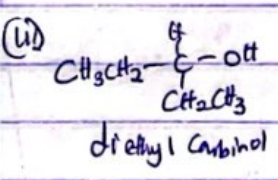 (ii)
H
CH3CH2-C-OH
CH2CH3
diethyl Carbinol